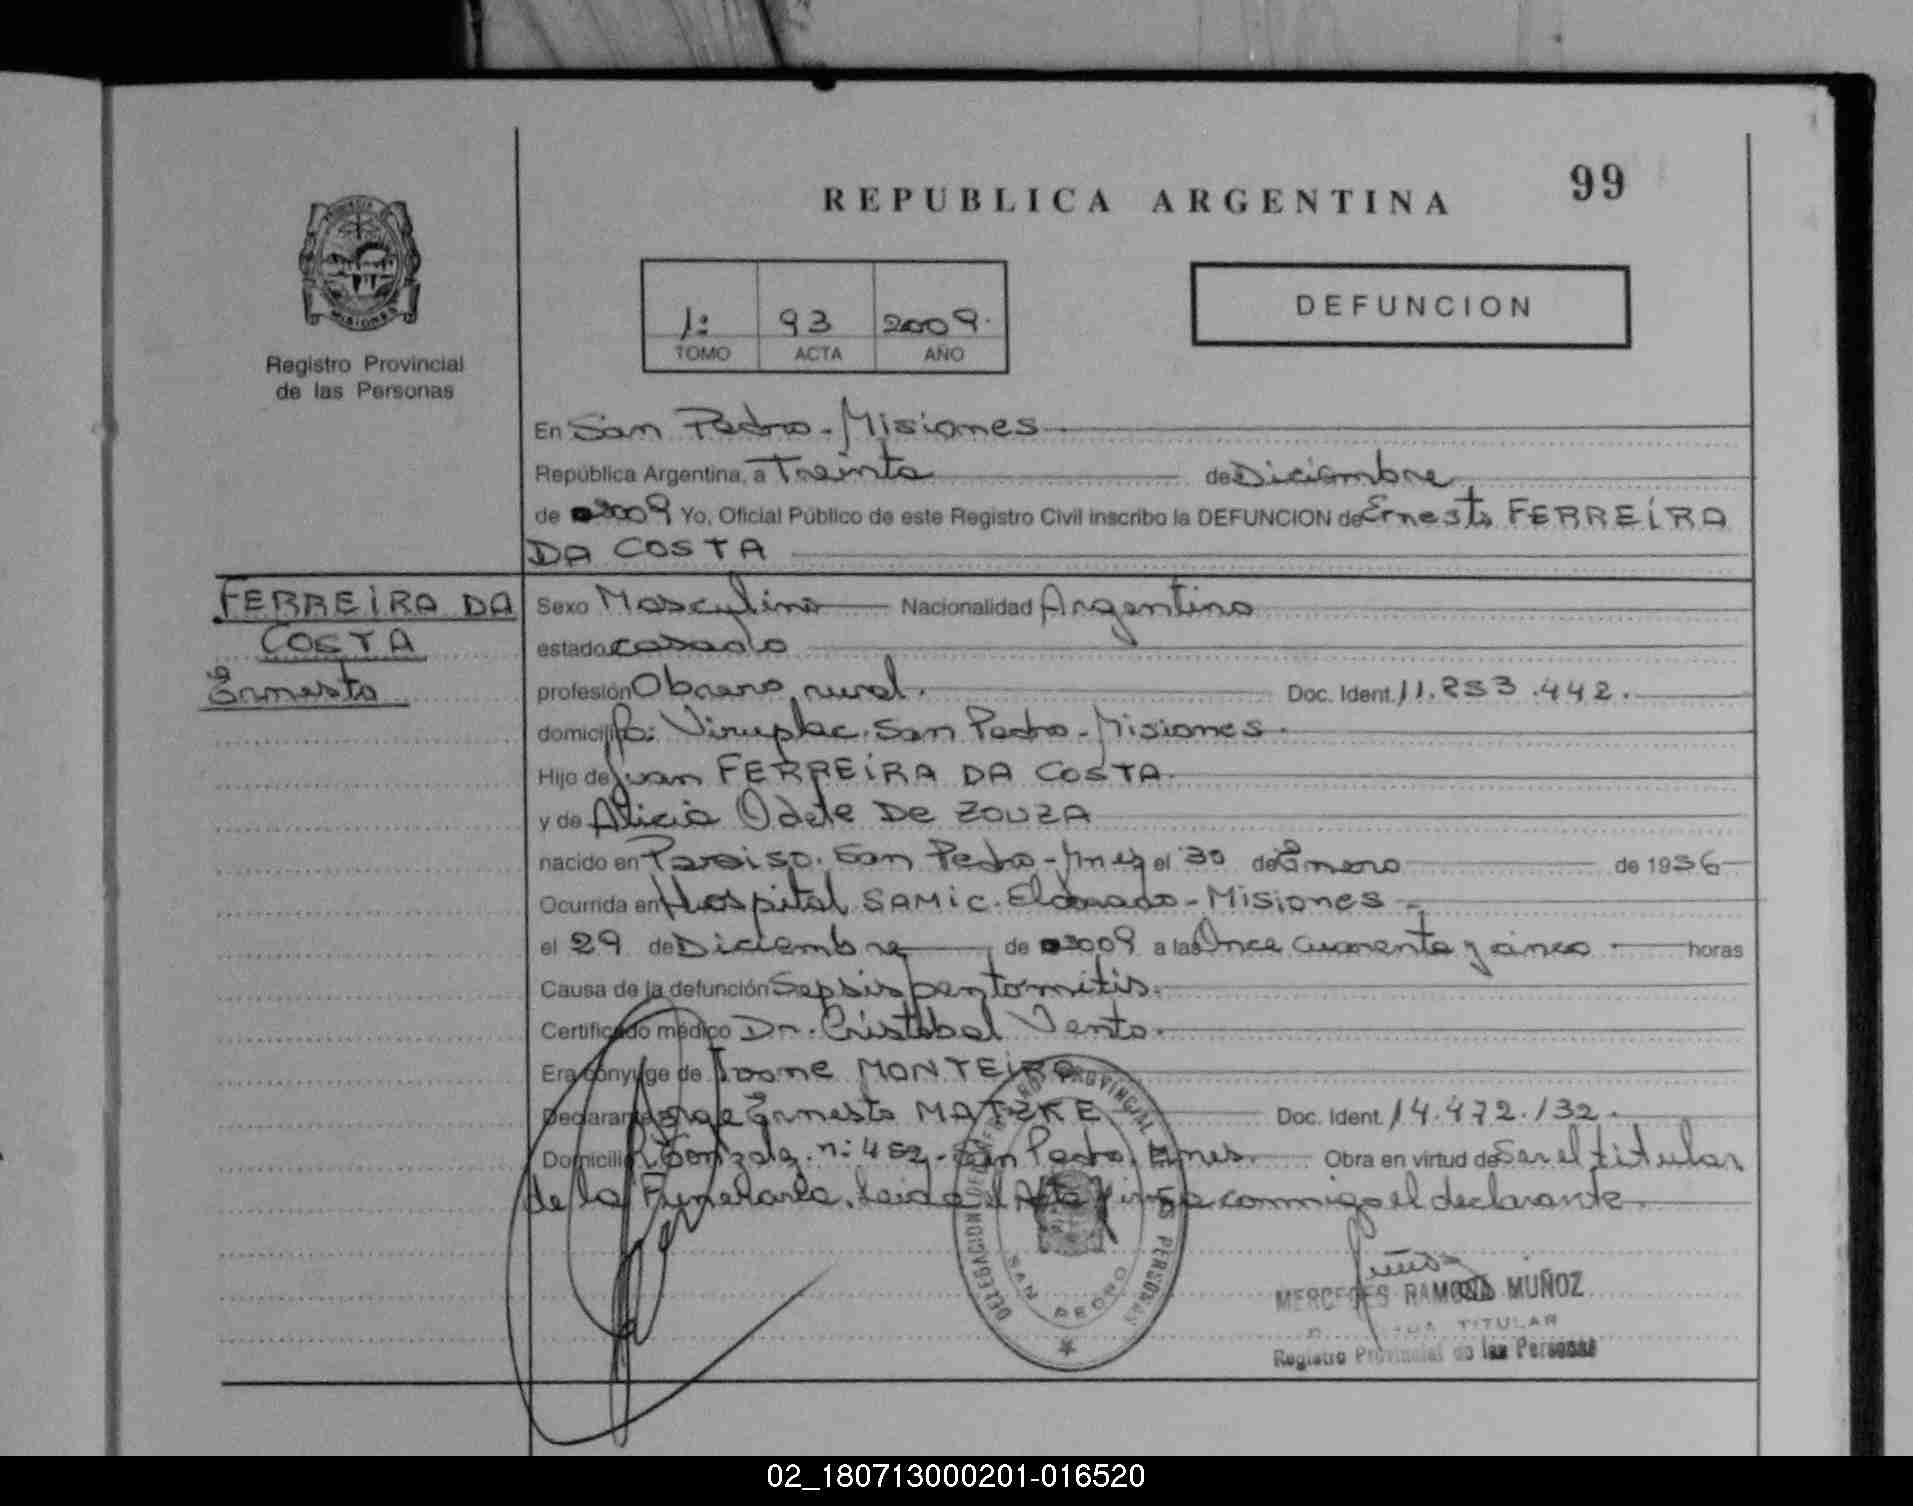 REPUBLICA ARGENTINA
99
PROVINCIA DE
MISIONES
Registro Provincial
de las Personas
1: 93 2009.
TOMO ACTA AÑO
DEFUNCION
En San Pedro - Misiones
República Argentina, a Treinta de Diciembre
de 2009 Yo, Oficial Público de este Registro Civil inscribo la DEFUNCION de Ernesto FERREIRA
DA COSTA
FERREIRA DA
COSTA
Ernesto
Sexo Masculino Nacionalidad Argentino
estado casado
profesión Obrero rural. Doc. Ident. 11.253.442.
domicilio Viruplac. San Pedro - Misiones.
Hijo de Juan FERREIRA DA COSTA.
y de Alicia Odete DE ZOUZA
nacido en Paraiso. San Pedro - Mnes el 30 de Enero de 1956
Ocurrida en Hospital SAMIC. Eldorado - Misiones -
el 29 de Diciembre de 2009 a las Once cuarenta y cinco horas
Causa de la defunción Sepsis
Certificado médico Dr. Cristobal Vento.
Era cónyuge de Ivone MONTEIRO
Declarante Jorge Ernesto MATZKE Doc. Ident. 14.472.132.
Domicilio R. Gonzalez. n: 452 - San Pedro. Mnes. Obra en virtud de Ser el titular
de la Funeraria. Leida el Acta firma conmigo el declarante.
DELEGACION DEL REGISTRO PROVINCIAL DE LAS PERSONAS
SAN PEDRO
MERCEDES RAMONA MUÑOZ
TITULAR
Registro Provincial de las Personas
02_180713000201-016520